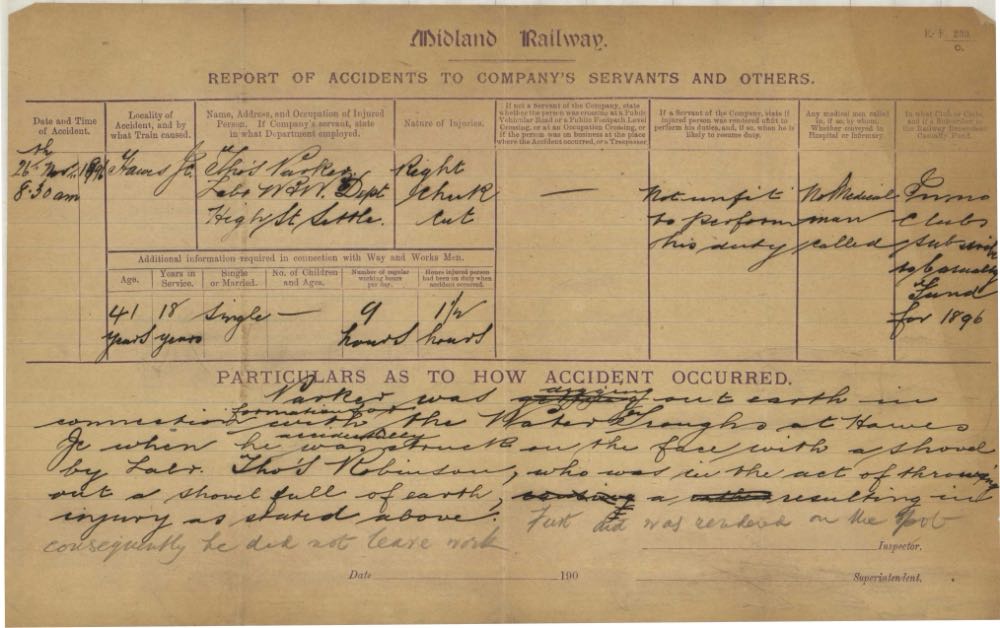 Midland Railway.
E.F. 233
REPORT OF ACCIDENTS TO COMPANY'S SERVANTS AND OTHERS.
Date and Time of Accident.
Locality of Accident, and by what Train caused.
Name, Address, and Occupation of Injured Person. If Company's servant, state in what Department employed.
Nature of Injuries.
If not a Servant of the Company, state whether the person was crossing at a Public Vehicular Road or a Public Footpath Level Crossing, or at an Occupation Crossing, or if the person was on business at the place where the Accident occurred, or a Trespasser
If a Servant of the Company, state if injured person was rendered unfit to perform his duties, and, if so, when he is likely to resume duty.
Any medical man called in, if so, by whom. Whether conveyed to Hospital or Infirmary
In what Club or Clubs, and if a Subscriber to the Railway Casualty Fund.
26th Nov. 1896
8.30 am
Hawes Jc.
Tho's Parker
Labr W&W. Dept
High St. Settle.
Right
Cheek
Cut
—
Not unfit
to perform
his duty
No Medical
man
called
In no
Clubs
to Casualty
Fund
for 1896
Additional information required in connection with Way and Works Men.
Age.
Years in Service.
Single or Married.
No. of Children and Ages.
Number of regular working hours per day.
Hours injured person had been on duty when accident occurred.
41
years
18
years
Single
—
9
hours
1½
hours
PARTICULARS AS TO HOW ACCIDENT OCCURRED.
Parker was digging out earth in
connection with formation for the Water Troughs at Hawes
Jc when he was accidentally struck on the face with a shovel
by Labr. Tho's Robinson, who was in the act of throwing
out a shovel full of earth, a resulting in
injury as stated above. First aid was rendered on the spot
consequently he did not leave work
Inspector.
Date 190
Superintendent.